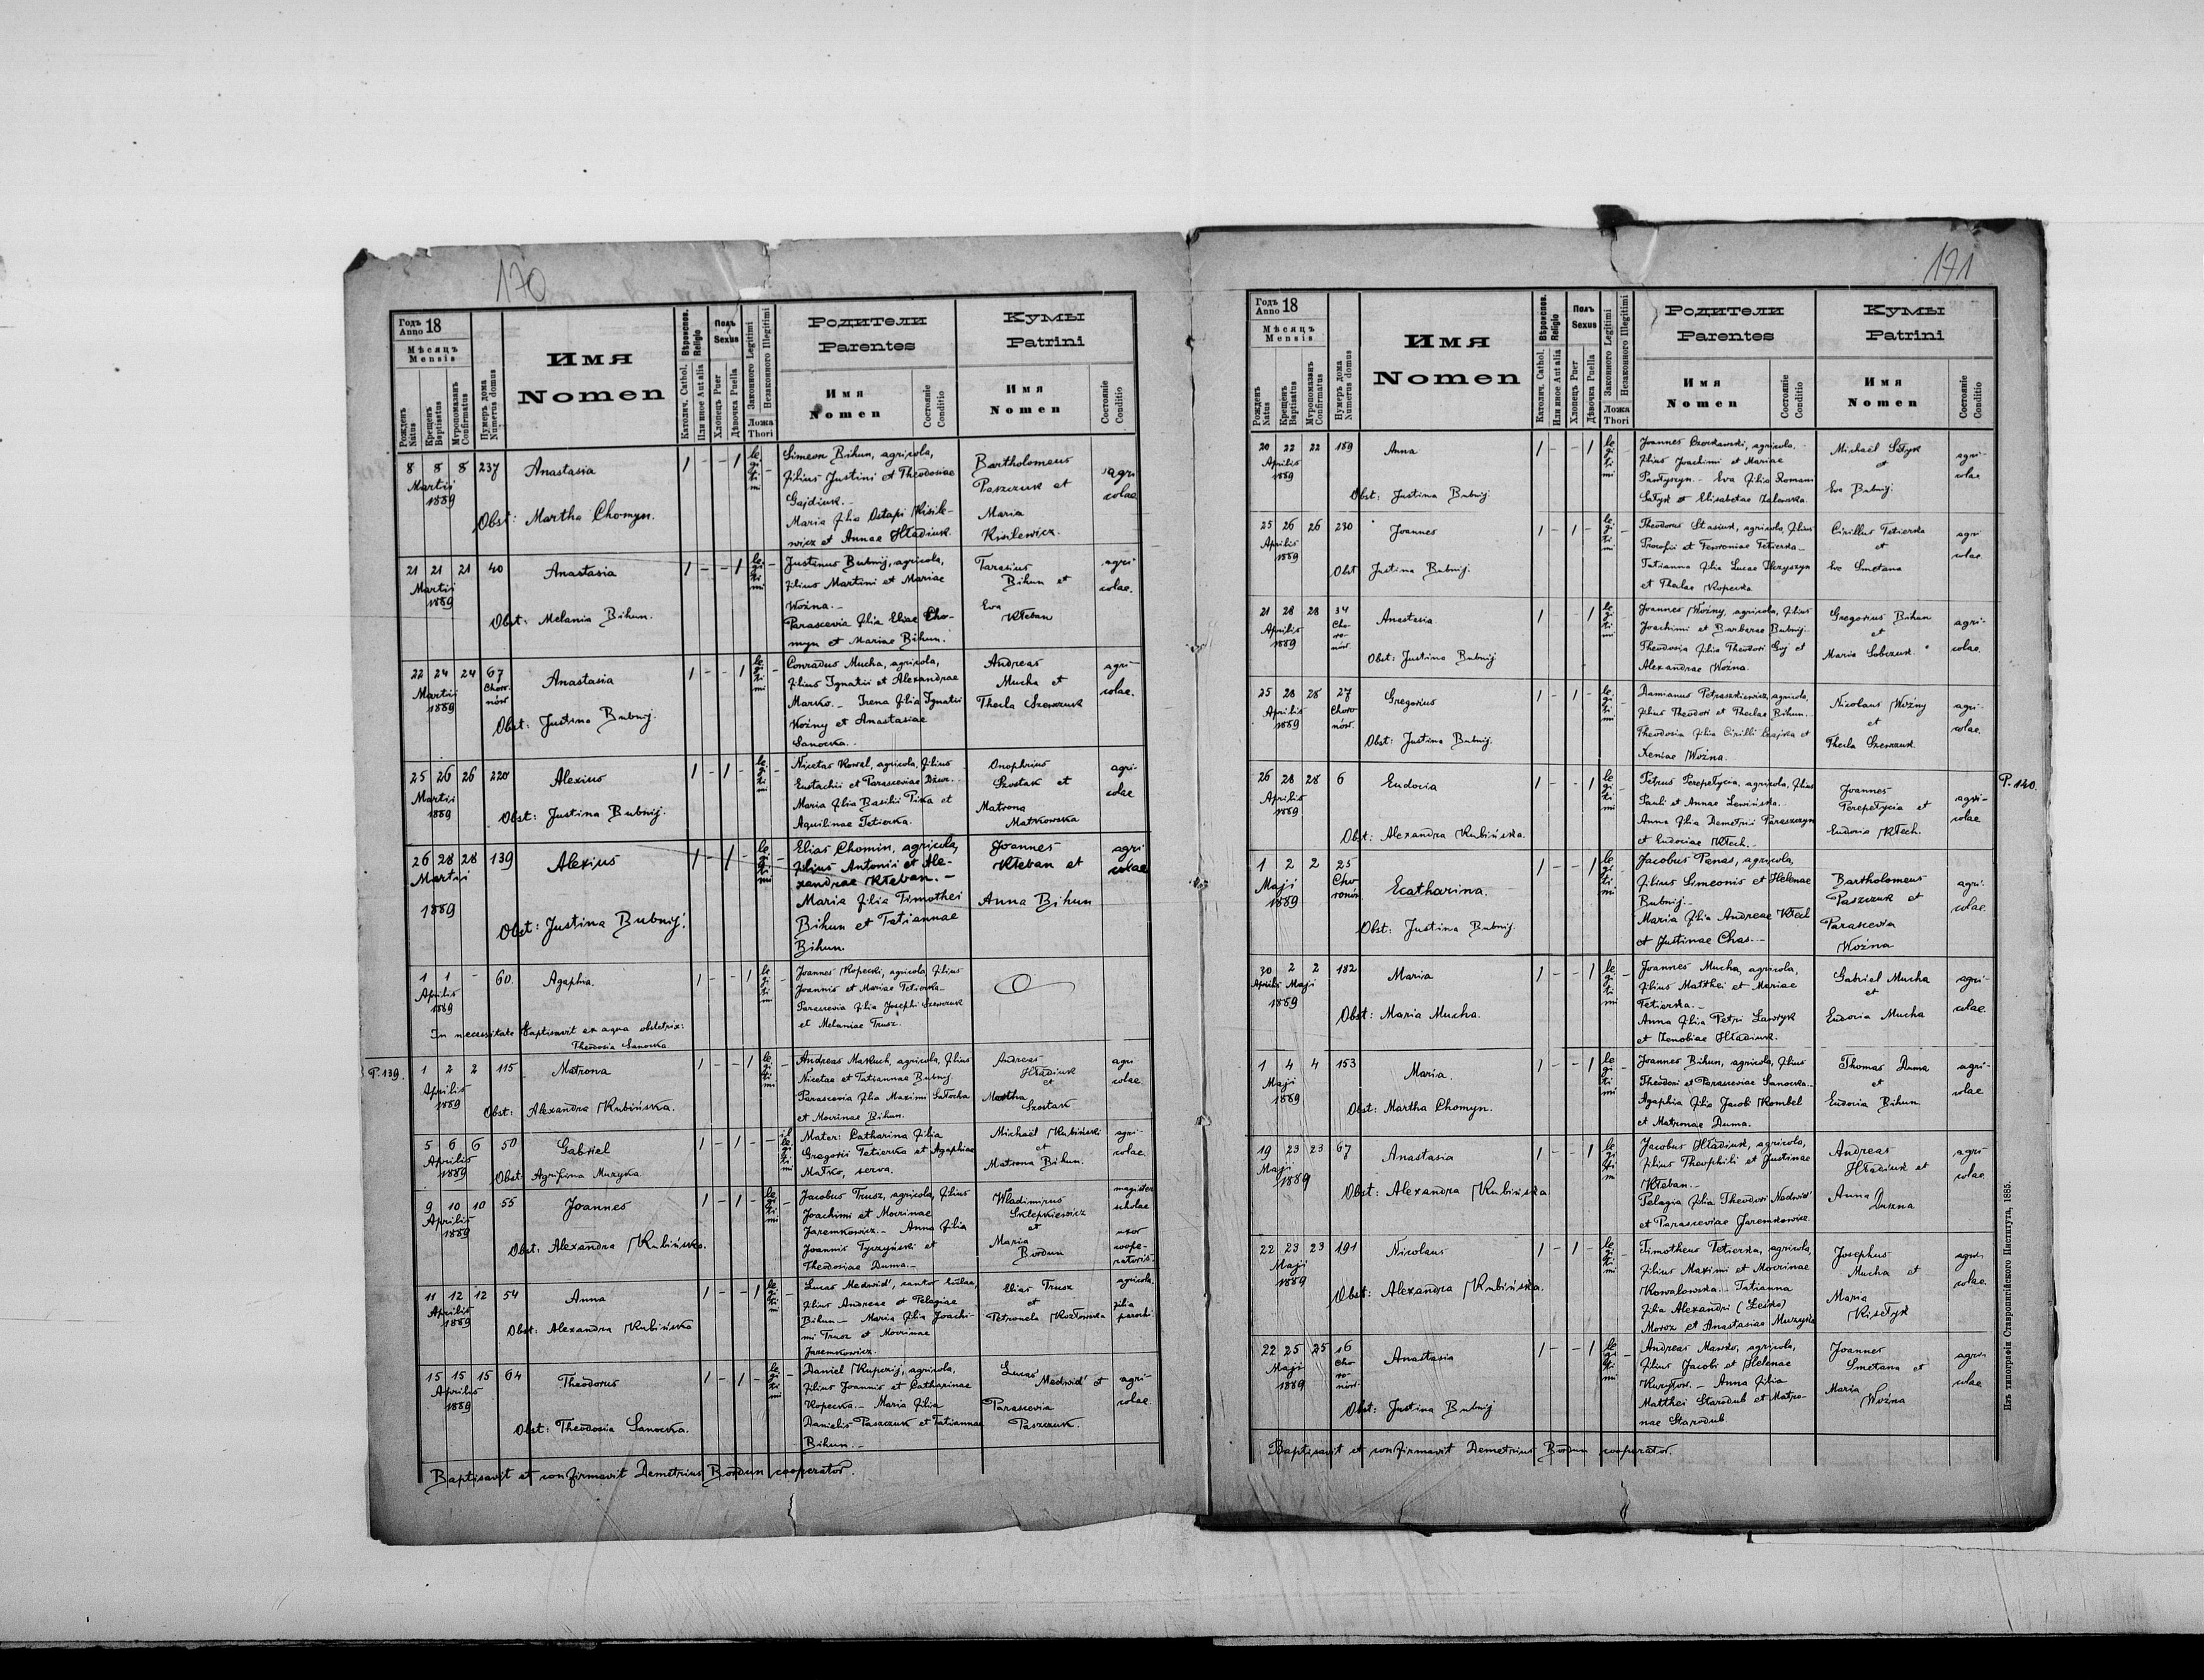 170
Годъ 18
Anno
Мѣсяцъ
Mensis
Рожденъ
Natus
Крещенъ
Baptisatus
Мѵропомазанъ
Confirmatus
Нумеръ дома
Numerus domus
Имя
Nomen
Вѣроиспов.
Religio
Католич. Cathol.
Или иное Aut alia
Полъ
Sexus
Хлопецъ Puer
Дѣвочка Puella
Законного Legitimi
Незаконного Illegitimi
Ложа
Thori
Родители
Parentes
Имя
Nomen
Состояніе
Conditio
Кумы
Patrini
Имя
Nomen
Состояніе
Conditio
8 8 8 237 Anastasia 1 - - 1 legitimi -
Martii
1889
Obst: Martha Chomyn.
Simeon Bihun, agricola,
filius Justini et Theodosiae
Gajdiuk.
Maria filia Ostapi Kisile-
wicz et Annae Hładiuk.
Bartholomeus
Paszczuk et
Maria
Kisilewicz.
agri
colae
21 21 21 40 Anastasia 1 - - 1 legitimi -
Martii
1889
Obst: Melania Bihun.
Justinus Bubnij, agricola,
filius Martini et Mariae
Woźna.-
Parascevia filia Eliae Cho-
myn et Mariae Bihun.
Tarasius
Bihun et
Eva
Kłeban
agri-
colae.
22 24 24 67 Anastasia 1 - - 1 legitimi -
Martii
1889
Choro-
nów
Obst: Justina Bubnij.
Conradus Mucha, agricola,
filius Ignatii et Alexandrae
Marko.- Irena filia Ignatii
Woźny et Anastasiae
Sanocka.
Andreas
Mucha et
Thecla Szewczuk
agri-
colae.
25 26 26 220 Alexius 1 - 1 - legitimi -
Martii
1889
Obst: Justina Bubnij.
Nicetas Kowal, agricola, filius
Eustachii et Parasceviae
Maria filia Basilii Pika et
Aquilinae Tetierka.
Onophrius
Szostak et
Matrona
Matkowska
agri-
colae
26 28 28 139 Alexius 1 - 1 - legitimi -
Martii
1889
Obst: Justina Bubnij.
Elias Chomin, agricola,
filius Antonii et Ale-
xandrae Kłeban.-
Maria filia Timothei
Bihun et Tatiannae
Bihun.
Joannes
Kłeban et
Anna Bihun
agri
colae
1 1 - 60. Agaphia. 1 - - 1 legitimi -
Aprilis
1889
In necessitate baptisavit ex aqua obstetrix:
Theodosia Sanocka
Joannes Kopecki, agricola, filius
Joannis et Mariae Tetierka-
Parascevia filia Josephi Szewczuk
et Melaniae Trusz.
P. 139.
1 2 2 115 Matrona 1 - - 1 legitimi -
Aprilis
1889
Obst: Alexandra Kubińska.
Andreas Makuch, agricola, filius
Nicetae et Tatiannae Bubnij
Parascevia filia Maximi
et Mocrinae Bihun.
Andreas
Hładiuk
et
Martha
Szostak
agri
colae.
5 6 6 50 Gabriel 1 - 1 - - illegitimi
Aprilis
1889
Obst: Agrifina Muzyka.
Mater: Catharina filia
Gregorii Tetierka et Agaphiae
Małko, serva.
Michaël Kubiński
et
Matrona Bihun.
agri-
colae.
9 10 10 55 Joannes 1 - 1 - legitimi -
Aprilis
1889
Obst: Alexandra Kubińska.
Jacobus Trusz, agricola, filius
Joachimi et Mocrinae
Jaremkowicz.- Anna filia
Joannis Tyczyński et
Theodosiae Duma.-
Wladimirus
Sklepkiewicz
et
Maria
Bordun
magister
scholae
uxor
coope-
ratoris.
11 12 12 54 Anna 1 - - 1 legitimi -
Aprilis
1889
Obst: Alexandra Kubińska
Lucas Medwid', cantor
filius Andreae et Pelagiae
Bihun- Maria filia Joachi-
mi Trusz et Mocrinae
Jaremkowicz.
Elias Trusz
et
Petronela Kozłowska
agricola
filia
parochi.
15 15 15 64 Theodorus 1 - 1 - legitimi -
Aprilis
1889
Obst: Theodosia Sanocka.
Daniel Kupczij, agricola,
filius Joannis et Catharinae
Kopecka.- Maria filia
Danielis Paszczuk et Tatiannae
Bihun.-
Lucas
Medwid' et
Parascevia
Paszczuk.
agri-
colae.
Baptisavit et confirmavit Demetrius Bordun cooperator.
171
Годъ 18
Anno
Мѣсяцъ
Mensis
Рожденъ
Natus
Крещенъ
Baptisatus
Мѵропомазанъ
Confirmatus
Нумеръ дома
Numerus domus
Имя
Nomen
Вѣроиспов.
Religio
Католич. Cathol.
Или иное Aut alia
Полъ
Sexus
Хлопецъ Puer
Дѣвочка Puella
Законного Legitimi
Незаконного Illegitimi
Ложа
Thori
Родители
Parentes
Имя
Nomen
Состояніе
Conditio
Кумы
Patrini
Имя
Nomen
Состояніе
Conditio
20 22 22 189 Anna 1 - - 1 legitimi -
Aprilis
1889
Obst: Justina Bubnij.
Joannes agricola,
filius Joachimi et Mariae
Eva filia Romani
et Elisabetae Zalewska.
Michaël
et
Eva Bubnij.
agri-
colae
25 26 26 230 Joannes 1 - 1 - legitimi -
Aprilis
1889
Obst Justina Bubnij.
Theodorus Stasiuk, agricola, filius
Procofii et Fewroniae Tetierka-
Tatianna filia Lucae
et Theclae Kopecka
Cirillus Tetierka
et
Eva Smetana
agri
colae.
21 28 28 34 Anastasia 1 - - 1 legitimi -
Aprilis
1889
Cho-
ro-
nów
Obst: Justina Bubnij
Joannes Woźny, agricola, filius
Joachimi et Barbarae Bubnij.
Theodosia filia Theodori Goj et
Alexandrae Woźna.
Gregorius Bihun
et
Maria Sobczuk.
agri-
colae.
25 28 28 27 Gregorius 1 - 1 - legitimi -
Aprilis
1889
Choro-
nów.
Obst: Justina Bubnij.
Damianus Petraszkiewicz, agricola,
filius Theodori et Theclae Bihun.
Theodosia filia Cirilli et
Xeniae Woźna.
Nicolaus Woźny
et
Thecla Szewczuk.
agri-
colae.
P. 140.
26 28 28 6 Eudocia 1 - - 1 legitimi -
Aprilis
1889
Obst: Alexandra Kubińska.
Petrus Perepełycia, agricola, filius
Pauli et Annae Lewińska.
Anna filia Demetrii Paraszczyn
et Eudociae Kłech.
Joannes
Perepełycia et
Eudocia Kłech.
agri-
colae
1 2 2 25 Ecatharina. 1 - - 1 legitimi -
Maji
1889
Cho-
ronów
Obst: Justina Bubnij.
Jacobus Panas, agricola,
filius Simeonis et Helenae
Bubnij.-
Maria filia Andreae Kłech
et Justinae Chas.-
Bartholomeus
Paszczuk et
Parascevia
Woźna
agri-
colae.
30 2 2 182 Maria 1 - - 1 legitimi -
Aprilis Maji
1889
Obst: Maria Mucha.
Joannes Mucha, agricola,
filius Matthei et Mariae
Tetierka.-
Anna filia Petri Lawryk
et Zenobiae Hładiuk.
Gabriel Mucha
et
Eudocia Mucha
agri-
colae.
1 4 4 153 Maria. 1 - - 1 legitimi -
Maji
1889
Obst: Martha Chomyn.
Joannes Bihun, agricola, filius
Theodori et Parasceviae Sanocka.-
Agaphia filia Jacobi Kombel
et Matronae Duma.
Thomas Duma
et
Eudocia Bihun
agri-
colae
19 23 23 67 Anastasia 1 - - 1 legitimi -
Maji
1889
Obst: Alexandra Kubińska
Jacobus Hładiuk, agricola,
filius Theophili et Justinae
Kłeban.-
Pelagia filia Theodori Nedwid'
et Parasceviae Jaremkowicz.
Andreas
Hładiuk et
Anna
agri-
colae
22 23 23 191 Nicolaus 1 - 1 - legitimi -
Maji
1889
Obst: Alexandra Kubińska.
Timotheus Tetierka, agricola,
filius Maximi et Mocrinae
Kowalowska.- Tatianna
filia Alexandri (Leśko)
Moroz et Anastasiae Muzyka
Josephus
Mucha et
Maria
Kisełyk
agri-
colae.
22 25 25 16 Anastasia 1 - - 1 legitimi
Maji
1889
Cho-
ro-
nów.
Obst: Justina Bubnij
Andreas Marko, agricola,
filius Jacobi et Helenae
Kuryłow.- Anna filia
Matthei Starodub et Matro-
nae Starodub
Joannes
Smetana et
Maria
Woźna
agri-
colae
Baptisavit et confirmavit Demetrius Bordun cooperator.
Изъ типографіи Ставропигійского Института, 1885.